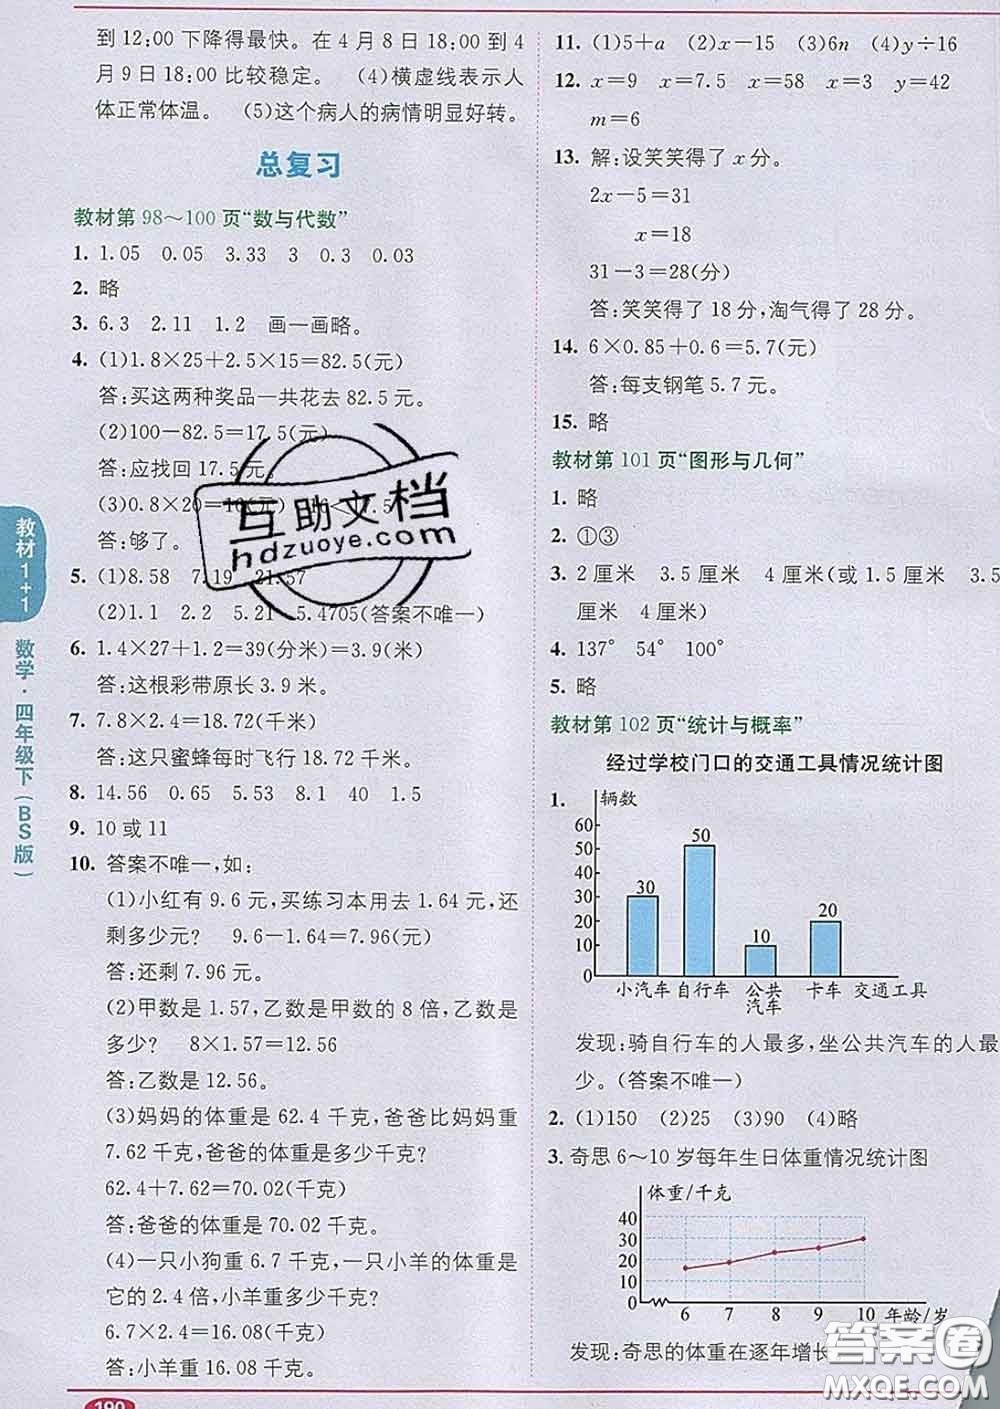 到 12:00 下降得最快。在 4 月 8 日 18:00 到 4
月 9 日 18:00 比较稳定。 (4)横虚线表示人
体正常体温。 (5)这个病人的病情明显好转。
总复习
教材第 98～100 页“数与代数”
1. 1.05 0.05 3.33 3 0.3 0.03
2. 略
3. 6.3 2.11 1.2 画一画略。
4. (1)1.8×25+2.5×15=82.5(元)
答:买这两种奖品一共花去 82.5 元。
(2)100-82.5=17.5(元)
答:应找回 17.5 元。
(3)0.8×20=16(元) 16<17.5
答:够了。
5. (1)8.58 7.19 21.57
(2)1.1 2.2 5.21 5.4705(答案不唯一)
6. 1.4×27+1.2=39(分米)=3.9(米)
答:这根彩带原长 3.9 米。
7. 7.8×2.4=18.72(千米)
答:这只蜜蜂每时飞行 18.72 千米。
8. 14.56 0.65 5.53 8.1 40 1.5
9. 10 或 11
10. 答案不唯一,如:
(1)小红有 9.6 元,买练习本用去 1.64 元,还
剩多少元? 9.6-1.64=7.96(元)
答:还剩 7.96 元。
(2)甲数是 1.57,乙数是甲数的 8 倍,乙数是
多少? 8×1.57=12.56
答:乙数是 12.56。
(3)妈妈的体重是 62.4 千克,爸爸比妈妈重
7.62 千克,爸爸的体重是多少千克?
62.4+7.62=70.02(千克)
答:爸爸的体重是 70.02 千克。
(4)一只小狗重 6.7 千克,一只小羊的体重是
它的 2.4 倍,小羊重多少千克?
6.7×2.4=16.08(千克)
答:小羊重 16.08 千克。
11. (1)5+a (2)x-15 (3)6n (4)y÷16
12. x=9 x=7.5 x=58 x=3 y=42
m=6
13. 解:设笑笑得了 x 分。
2x-5=31
x=18
31-3=28(分)
答:笑笑得了 18 分,淘气得了 28 分。
14. 6×0.85+0.6=5.7(元)
答:每支钢笔 5.7 元。
15. 略
教材第 101 页“图形与几何”
1. 略
2. ①③
3. 2 厘米 3.5 厘米 4 厘米(或 1.5 厘米 3.5
厘米 4 厘米)
4. 137° 54° 100°
5. 略
教材第 102 页“统计与概率”
经过学校门口的交通工具情况统计图
1. 辆数
60
50
40
30
20
10
0
30 50 10 20
小汽车 自行车 公共汽车 卡车 交通工具
发现:骑自行车的人最多,坐公共汽车的人最
少。(答案不唯一)
2. (1)150 (2)25 (3)90 (4)略
3. 奇思 6～10 岁每年生日体重情况统计图
体重/千克
40
30
20
10
0
6 7 8 9 10 年龄/岁
发现:奇思的体重在逐年增长
教材1+1
数学·四年级下(BS版)
190
互助文档
hdzuoye.com
答案圈
MXQE.COM